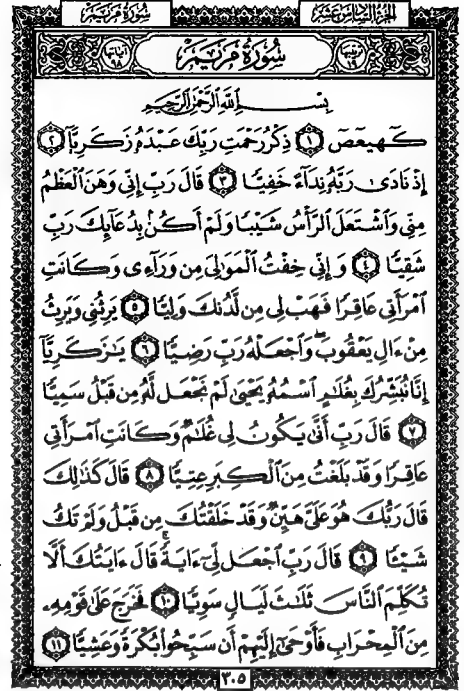 الجزء السادس عشر
سورة مريم
ترتيبها ١٩
سُورَةُ مَرْيَمَ
آياتها ٩٨
بِسْمِ ٱللَّهِ ٱلرَّحْمَٰنِ ٱلرَّحِيمِ
كٓهيعٓصٓ ١ ذِكْرُ رَحْمَتِ رَبِّكَ عَبْدَهُۥ زَكَرِيَّآ ٢
إِذْ نَادَىٰ رَبَّهُۥ نِدَآءً خَفِيًّا ٣ قَالَ رَبِّ إِنِّى وَهَنَ ٱلْعَظْمُ
مِنِّى وَٱشْتَعَلَ ٱلرَّأْسُ شَيْبًا وَلَمْ أَكُنۢ بِدُعَآئِكَ رَبِّ
شَقِيًّا ٤ وَإِنِّى خِفْتُ ٱلْمَوَٰلِىَ مِن وَرَآءِى وَكَانَتِ
ٱمْرَأَتِى عَاقِرًا فَهَبْ لِى مِن لَّدُنكَ وَلِيًّا ٥ يَرِثُنِى وَيَرِثُ
مِنْ ءَالِ يَعْقُوبَۖ وَٱجْعَلْهُ رَبِّ رَضِيًّا ٦ يَٰزَكَرِيَّآ
إِنَّا نُبَشِّرُكَ بِغُلَٰمٍ ٱسْمُهُۥ يَحْيَىٰ لَمْ نَجْعَل لَّهُۥ مِن قَبْلُ سَمِيًّا
٧ قَالَ رَبِّ أَنَّىٰ يَكُونُ لِى غُلَٰمٌ وَكَانَتِ ٱمْرَأَتِى
عَاقِرًا وَقَدْ بَلَغْتُ مِنَ ٱلْكِبَرِ عِتِيًّا ٨ قَالَ كَذَٰلِكَ
قَالَ رَبُّكَ هُوَ عَلَىَّ هَيِّنٌ وَقَدْ خَلَقْتُكَ مِن قَبْلُ وَلَمْ تَكُ
شَيْـًٔا ٩ قَالَ رَبِّ ٱجْعَل لِّىٓ ءَايَةًۚ قَالَ ءَايَتُكَ أَلَّا
تُكَلِّمَ ٱلنَّاسَ ثَلَٰثَ لَيَالٍ سَوِيًّا ١٠ فَخَرَجَ عَلَىٰ قَوْمِهِۦ
مِنَ ٱلْمِحْرَابِ فَأَوْحَىٰٓ إِلَيْهِمْ أَن سَبِّحُوا۟ بُكْرَةً وَعَشِيًّا ١١
٣٠٥